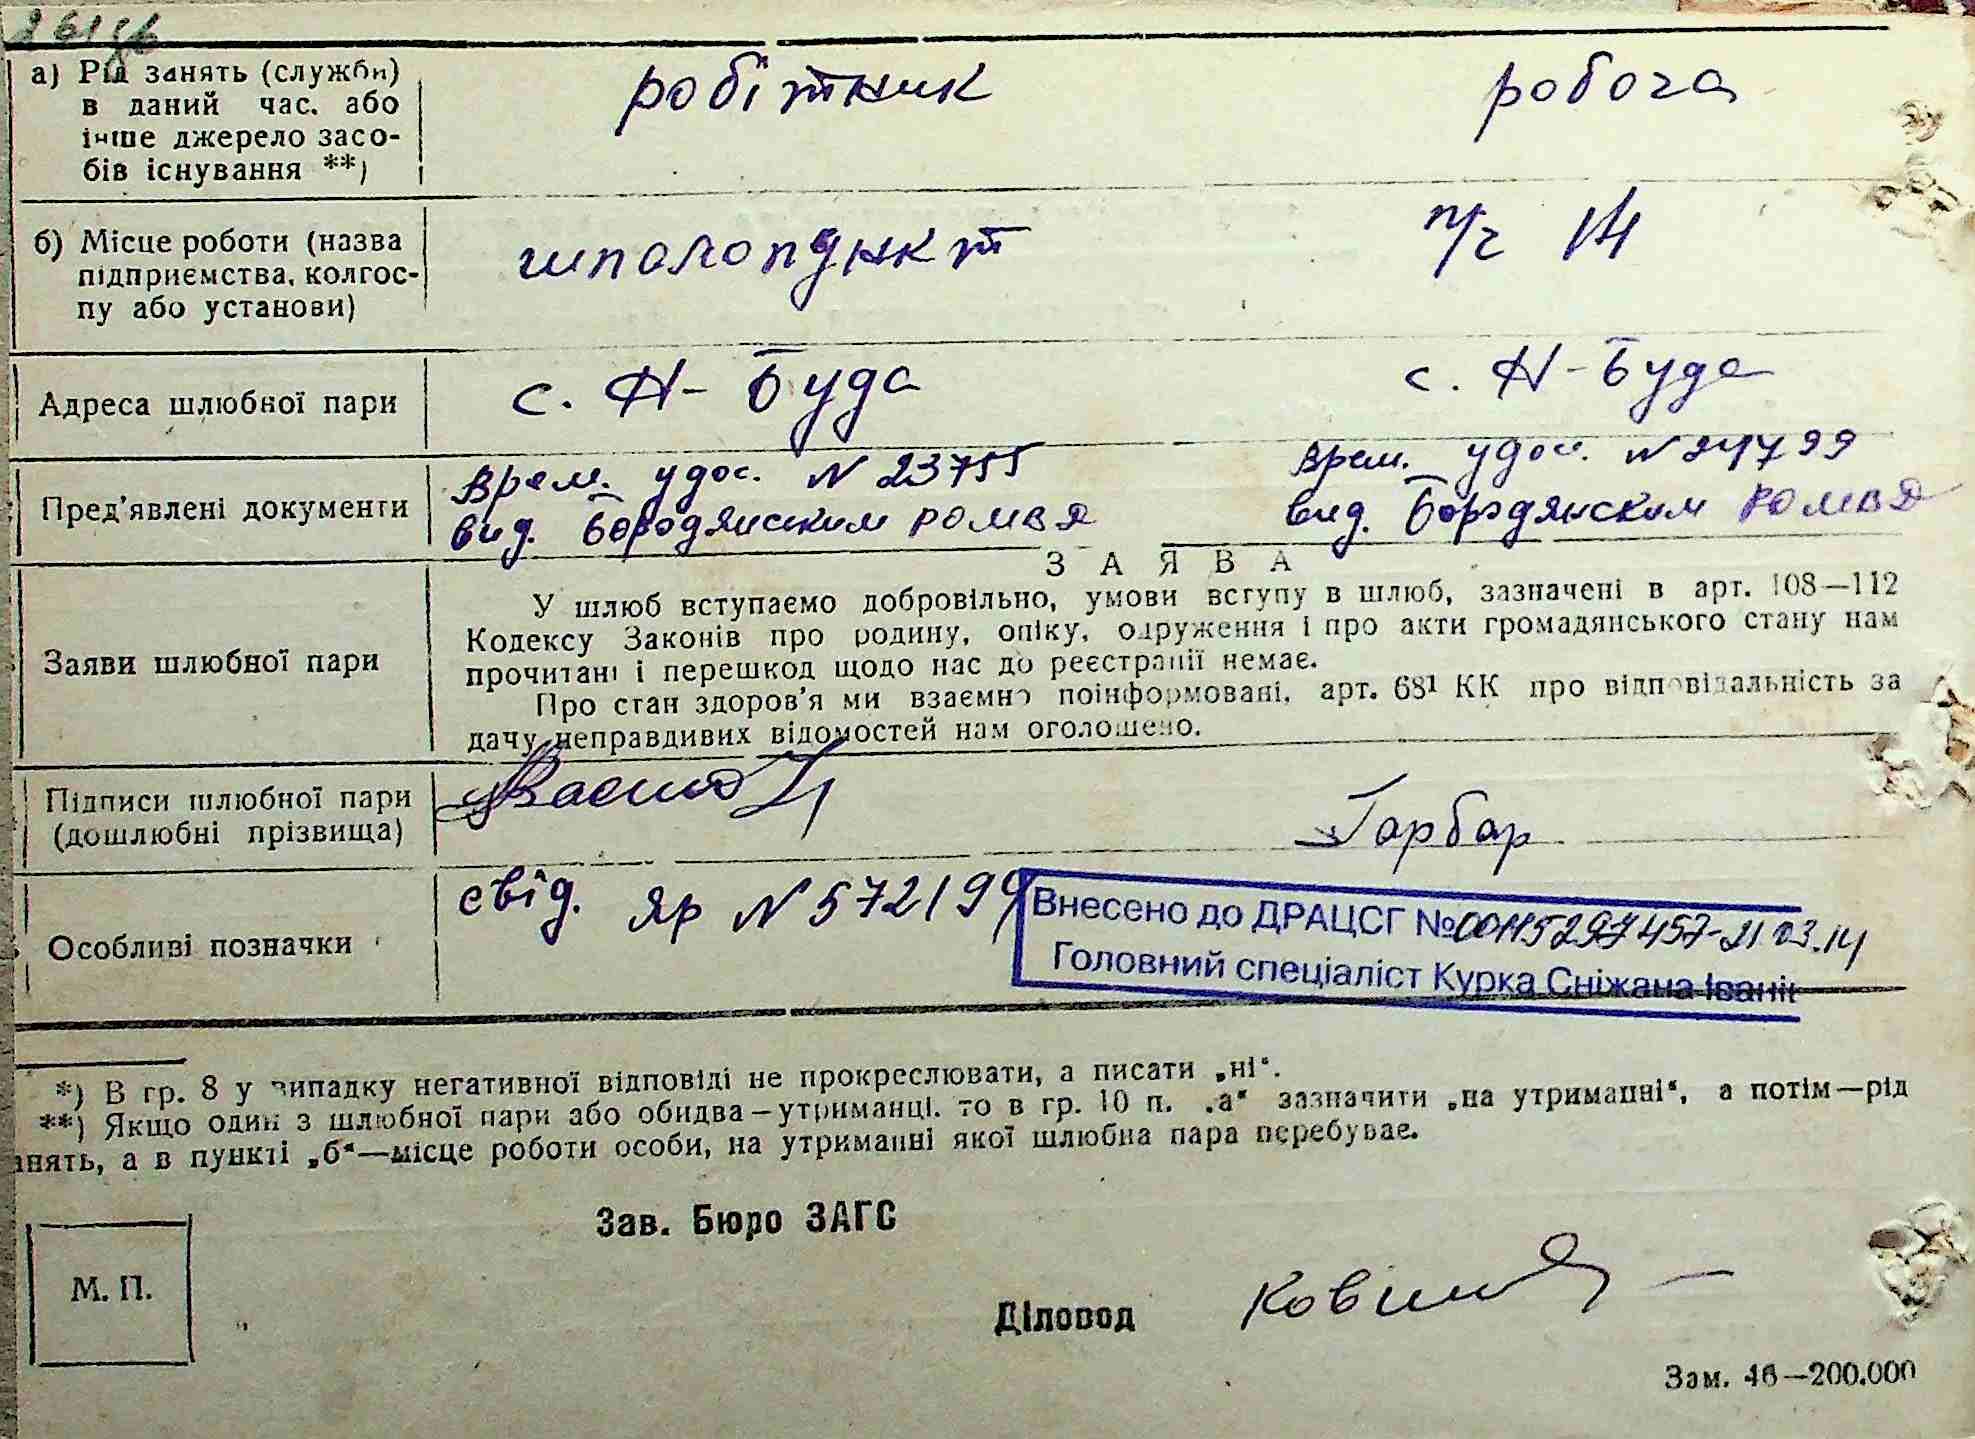 а) Рід занять (служби) в даний час, або інше джерело засобів існування **)
робітник
робоча
б) Місце роботи (назва підприємства, колгоспу або установи)
шпалопункт
п/ч 14
Адреса шлюбної пари
с. Н-Буда
с. Н-Буда
Пред'явлені документи
Врем. удос. N 23755
вид. Бородянским РОМВД
Врем. удос. N 24799
вид. Бородянским РОМВД
Заяви шлюбної пари
ЗАЯВА
У шлюб вступаємо добровільно, умови вступу в шлюб, зазначені в арт. 108—112
Кодексу Законів про родину, опіку, одруження і про акти громадянського стану нам
прочитані і перешкод щодо нас до реєстрації немає.
Про стан здоров'я ми взаємно поінформовані, арт. 68¹ КК про відповідальність за
дачу неправдивих відомостей нам оголошено.
Підписи шлюбної пари
(дошлюбні прізвища)
Гарбар
Особливі позначки
свід. ЯР N 572199
Внесено до ДРАЦСГ №00115297457-21.03.14
Головний спеціаліст Курка Сніжана Івані
*) В гр. 8 у випадку негативної відповіді не прокреслювати, а писати „ні“.
**) Якщо один з шлюбної пари або обидва—утриманці, то в гр. 10 п. „а“ зазначити „на утриманні“, а потім—рід
анять, а в пункті „б“—місце роботи особи, на утриманні якої шлюбна пара перебуває.
Зав. Бюро ЗАГС
М. П.
Діловод
Зам. 46—200.000